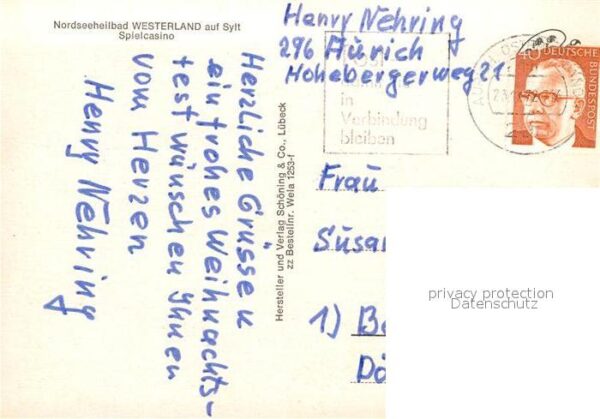 Nordseeheilbad WESTERLAND auf Sylt
Spielcasino
Herzliche Grüsse u
ein frohes Weihnachts-
fest wünschen Ihnen
vom Herzen
Henry Nehring
Hersteller und Verlag Schöning & Co., Lübeck
zz Bestellnr. Wela 1253-f
Henry Nehring
296 Aurich
Hohebergerweg 21
in
Verbindung
bleiben
40
DEUTSCHE BUNDESPOST
Frau
Susan
1) Be
Dö
privacy protection
Datenschutz